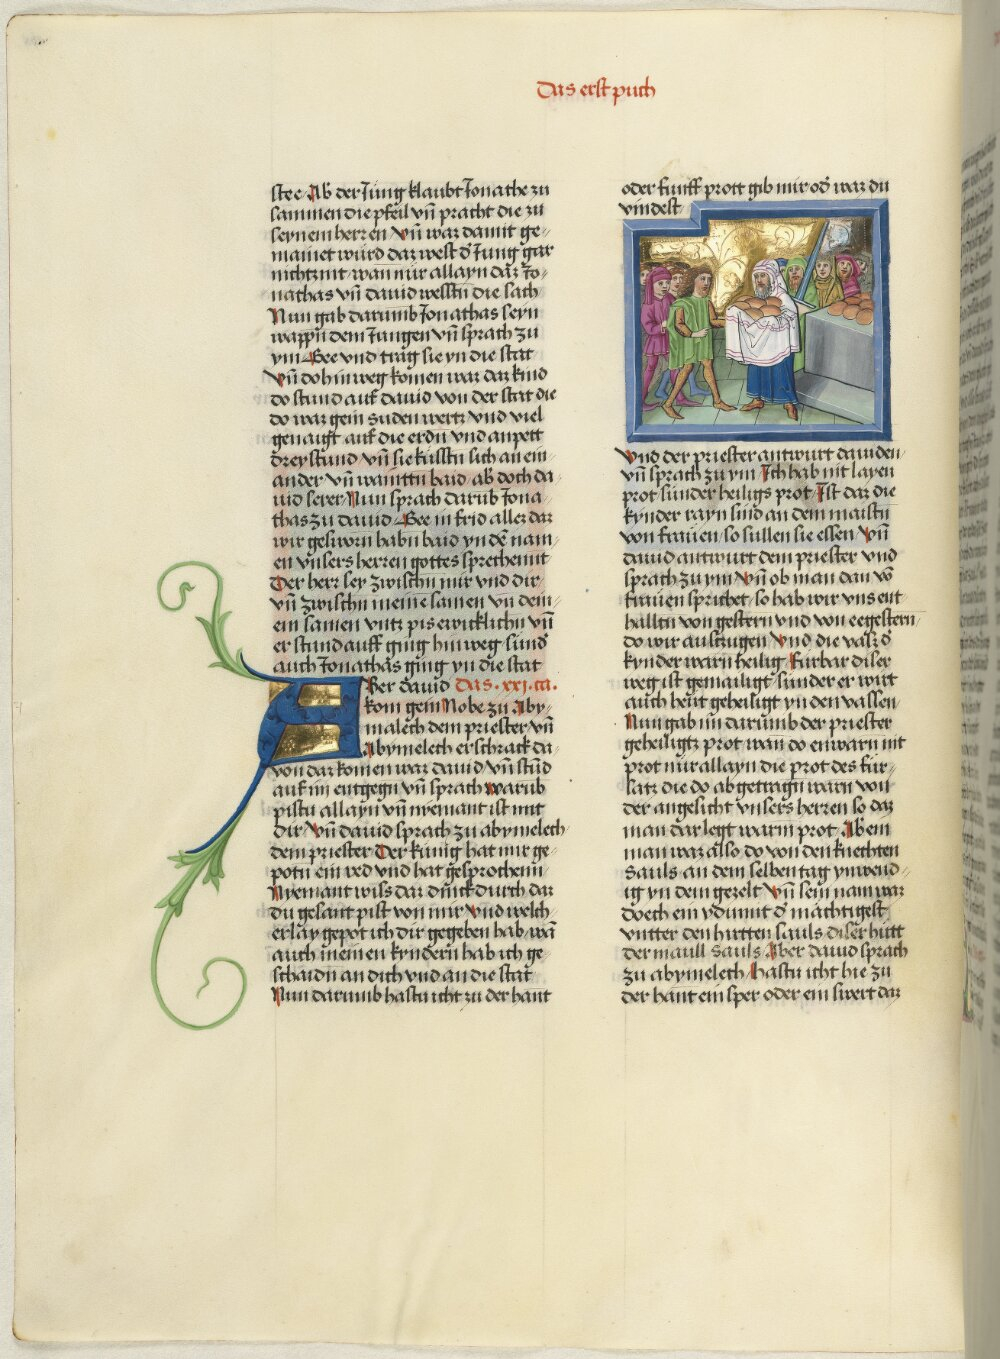 Das erst puch
stee Ab der Jung klaubt Jonathe zu
sammen die pfeil vn̄ pracht die zu
seynem herren Vn̄ war damit ge-
mainet wurd daz west d' Jung gar
nichtznit wan nur allayn daz Jo-
nathas vn̄ dauid wesstn die sach
Nun gab darumb Jonathas seyn
wappn̄ dem Jungen vn̄ sprach zu
ym Gee vnd trag sie yn die stat
Vn̄ do hinweg komen war daz kind
do stund auf dauid von der stat die
do waz gein suden wertz vnd viel
genaigt auf die erdn̄ vnd anpett
dreystund vn̄ sie kusstn sich an ein
ander vn̄ wainttn baid ab doch da
uid serer Nun sprach darūb Jona
thas zu dauid Gee in frid allez daz
wir gesworn habn̄ baid yn dē nam
en vnsers herren gottes sprechennt
Der herr sey zwischn mir vnd dir
vn̄ zwischn meinē samen vn̄ dein
em samen vntz pis ewicklichn vn̄
er stund auff ging hinweg sund'
auch Jonathas ging yn die stat
Aber dauid das .xxi. ca.
kom gein Nobe zu Aby-
malech dem priester vn̄
Abymelech erschrack da
von daz komen war dauid vn̄ stūd
auf im entgegn vn̄ sprach warūb
pistu allayn vn̄ nyemant ist mit
dir Vn̄ dauid sprach zu abymelech
dem priester Der kunig hat mir ge-
potn ein red vnd hat gesprochenn
Nyemant wiss daz dinck durch daz
du gesant pist von mir vnd welch
erlay gepot ich dir gegeben hab wā
auch meinen kyndern hab ich ge-
schaidn an dich vnd an die stat
Nun darumb hastu icht zu der hant
oder funff prott gib mir od' waz du
vindest
Vnd der priester antwurt dauiden
vn̄ sprach zu ym Ich hab nit layen
prot sunder heiligs prot Ist daz die
kynder rayn sind an dem maistn
von frauen so sullen sie essen Vn̄
dauid antwurt dem priester vnd
sprach zu ym Vn̄ ob man dan vō
frauen sprichet so hab wir vns ent
halltn von gestern vnd von eegestern
do wir ausszugen Vnd die vasz d'
kynder warn heilig Furbar diser
weg ist gemailigt sunder er wirt
auch heut geheiligt yn den vassen
Nun gab im darumb der priester
geheiligtz prot wan do enwarn nit
prot nur allayn die prot des fur-
satz die do abgetragn warn von
der angesicht vnsers herren so daz
man dar legt warm prot Ab ein
man waz also do von den knechten
Sauls an dem selben tag ynwend-
ig yn dem gezelt Vn̄ sein nam waz
doech ein ydumit d' machtigest
vntter den hirtten sauls diser hutt
der maull Sauls Aber dauid sprach
zu abymelech hastu icht hie zu
der hant ein sper oder ein swert daz